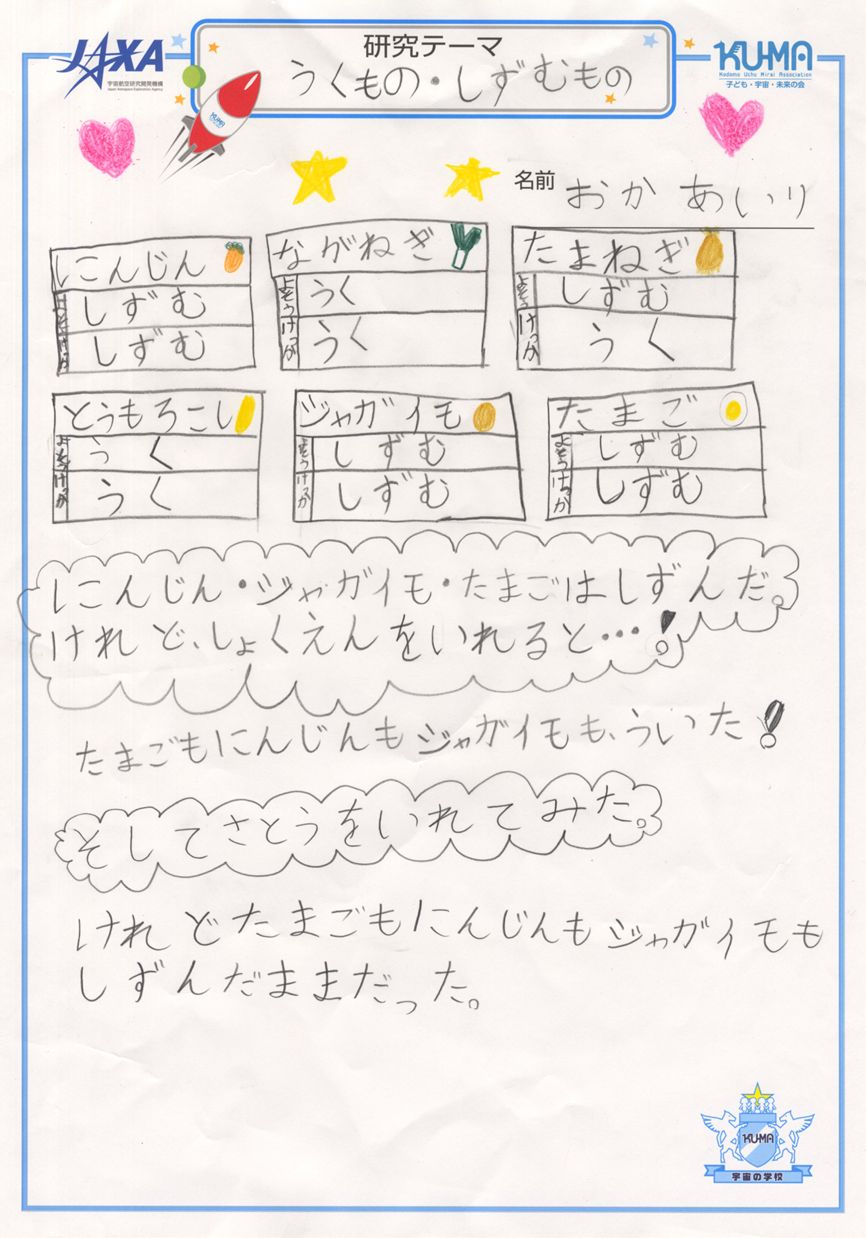 JAXA
宇宙航空研究開発機構
Japan Aerospace Exploration Agency
研究テーマ
うくもの・しずむもの
KUMA
Kodomo Uchu Mirai Association
子ども・宇宙・未来の会
KUMA
名前 おか あいり
にんじん
よそう しずむ
けっか しずむ
ながねぎ
よそう うく
けっか うく
たまねぎ
よそう しずむ
けっか うく
とうもろこし
よそう うく
けっか うく
ジャガイモ
よそう しずむ
けっか しずむ
たまご
よそう しずむ
けっか しずむ
にんじん・ジャガイモ・たまごはしずんだ。
けれど、しょくえんをいれると…!
たまごもにんじんもジャガイモも、ういた!
そしてさとうをいれてみた。
けれどたまごもにんじんもジャガイモも
しずんだままだった。
KUMA
宇宙の学校